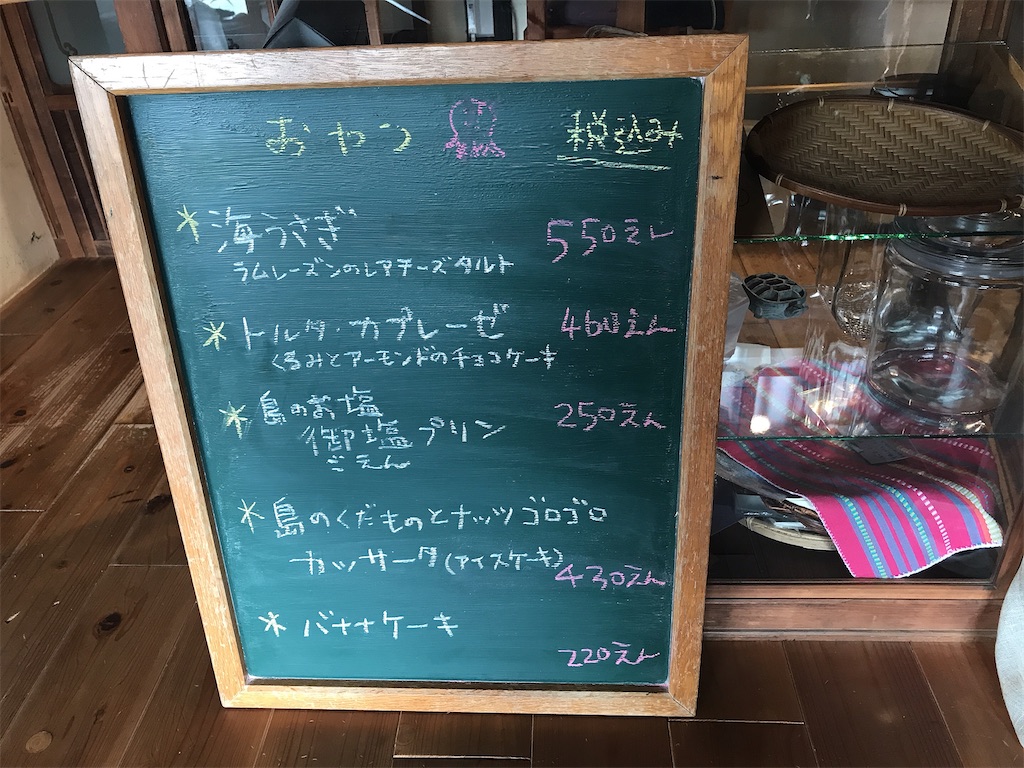 おやつ 税込み
* 海うさぎ 550えん
ラムレーズンのレアチーズタルト
* トルタ・カプレーゼ 460えん
くるみとアーモンドのチョコケーキ
* 島のお塩 250えん
御塩プリン
ごえん
* 島のくだものとナッツゴロゴロ
カッサータ(アイスケーキ) 430えん
* バナナケーキ
220えん